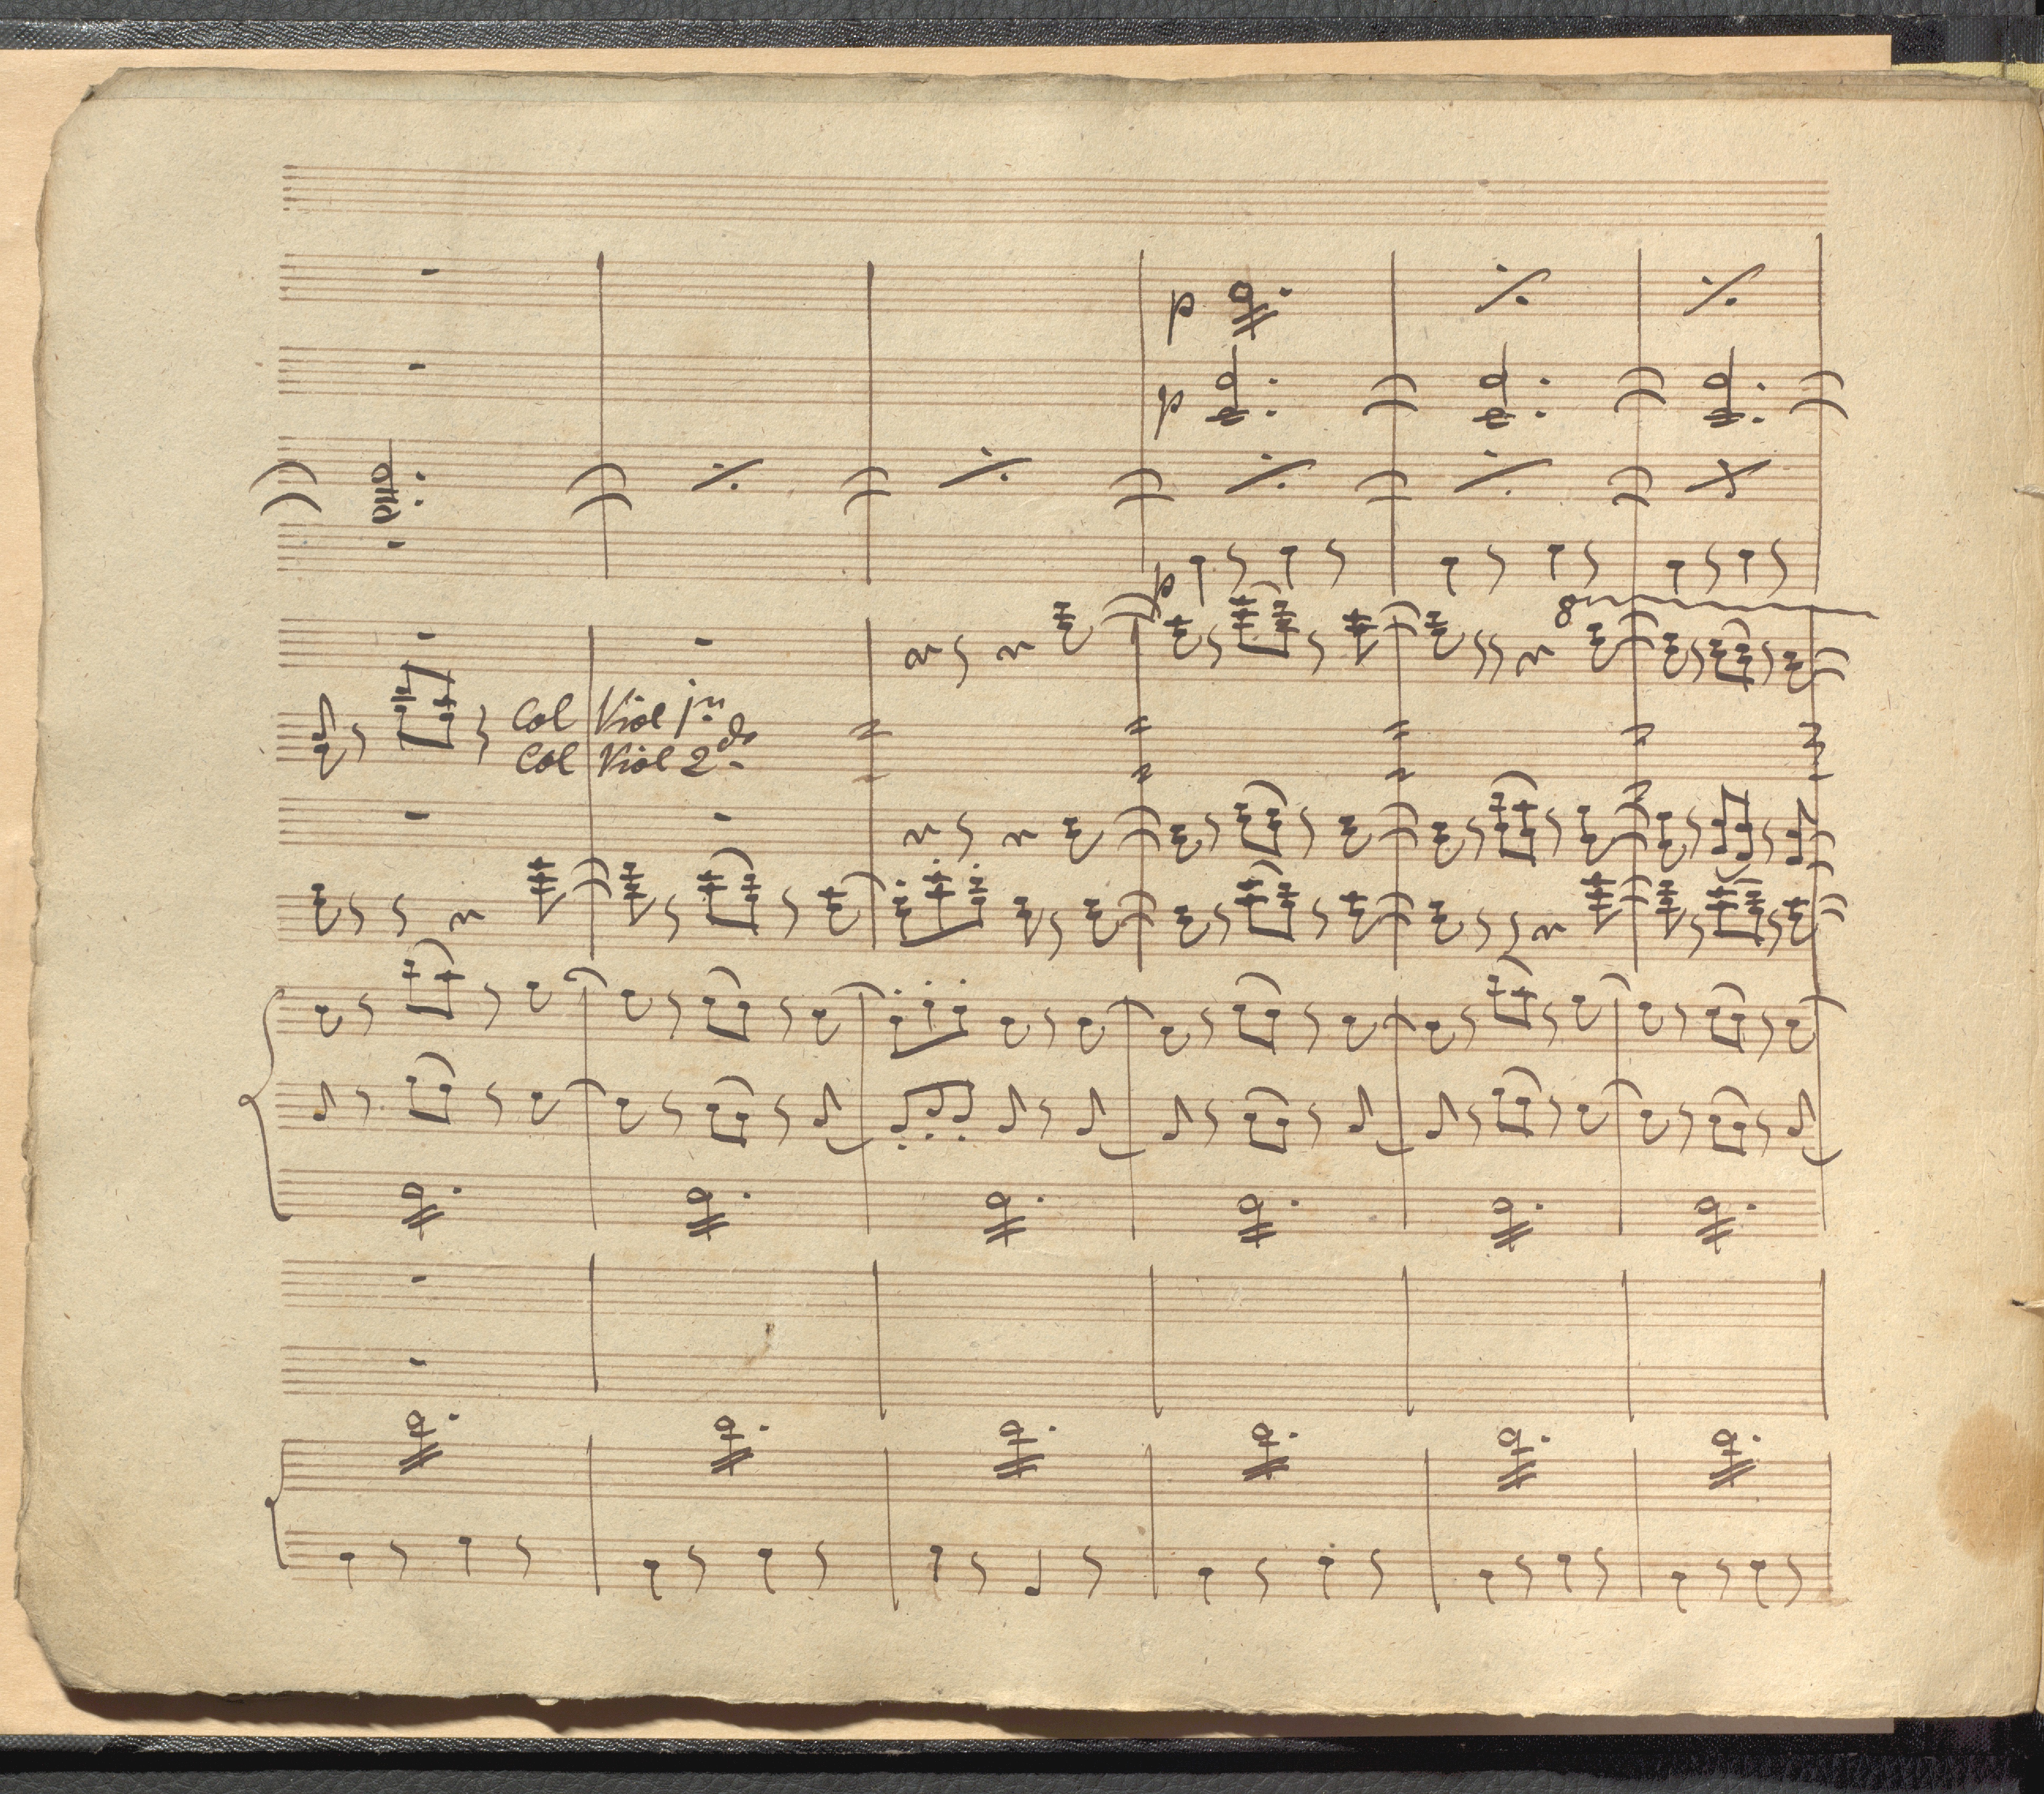 p
p
p
8
Col Viol 1mo
Col Viol 2do